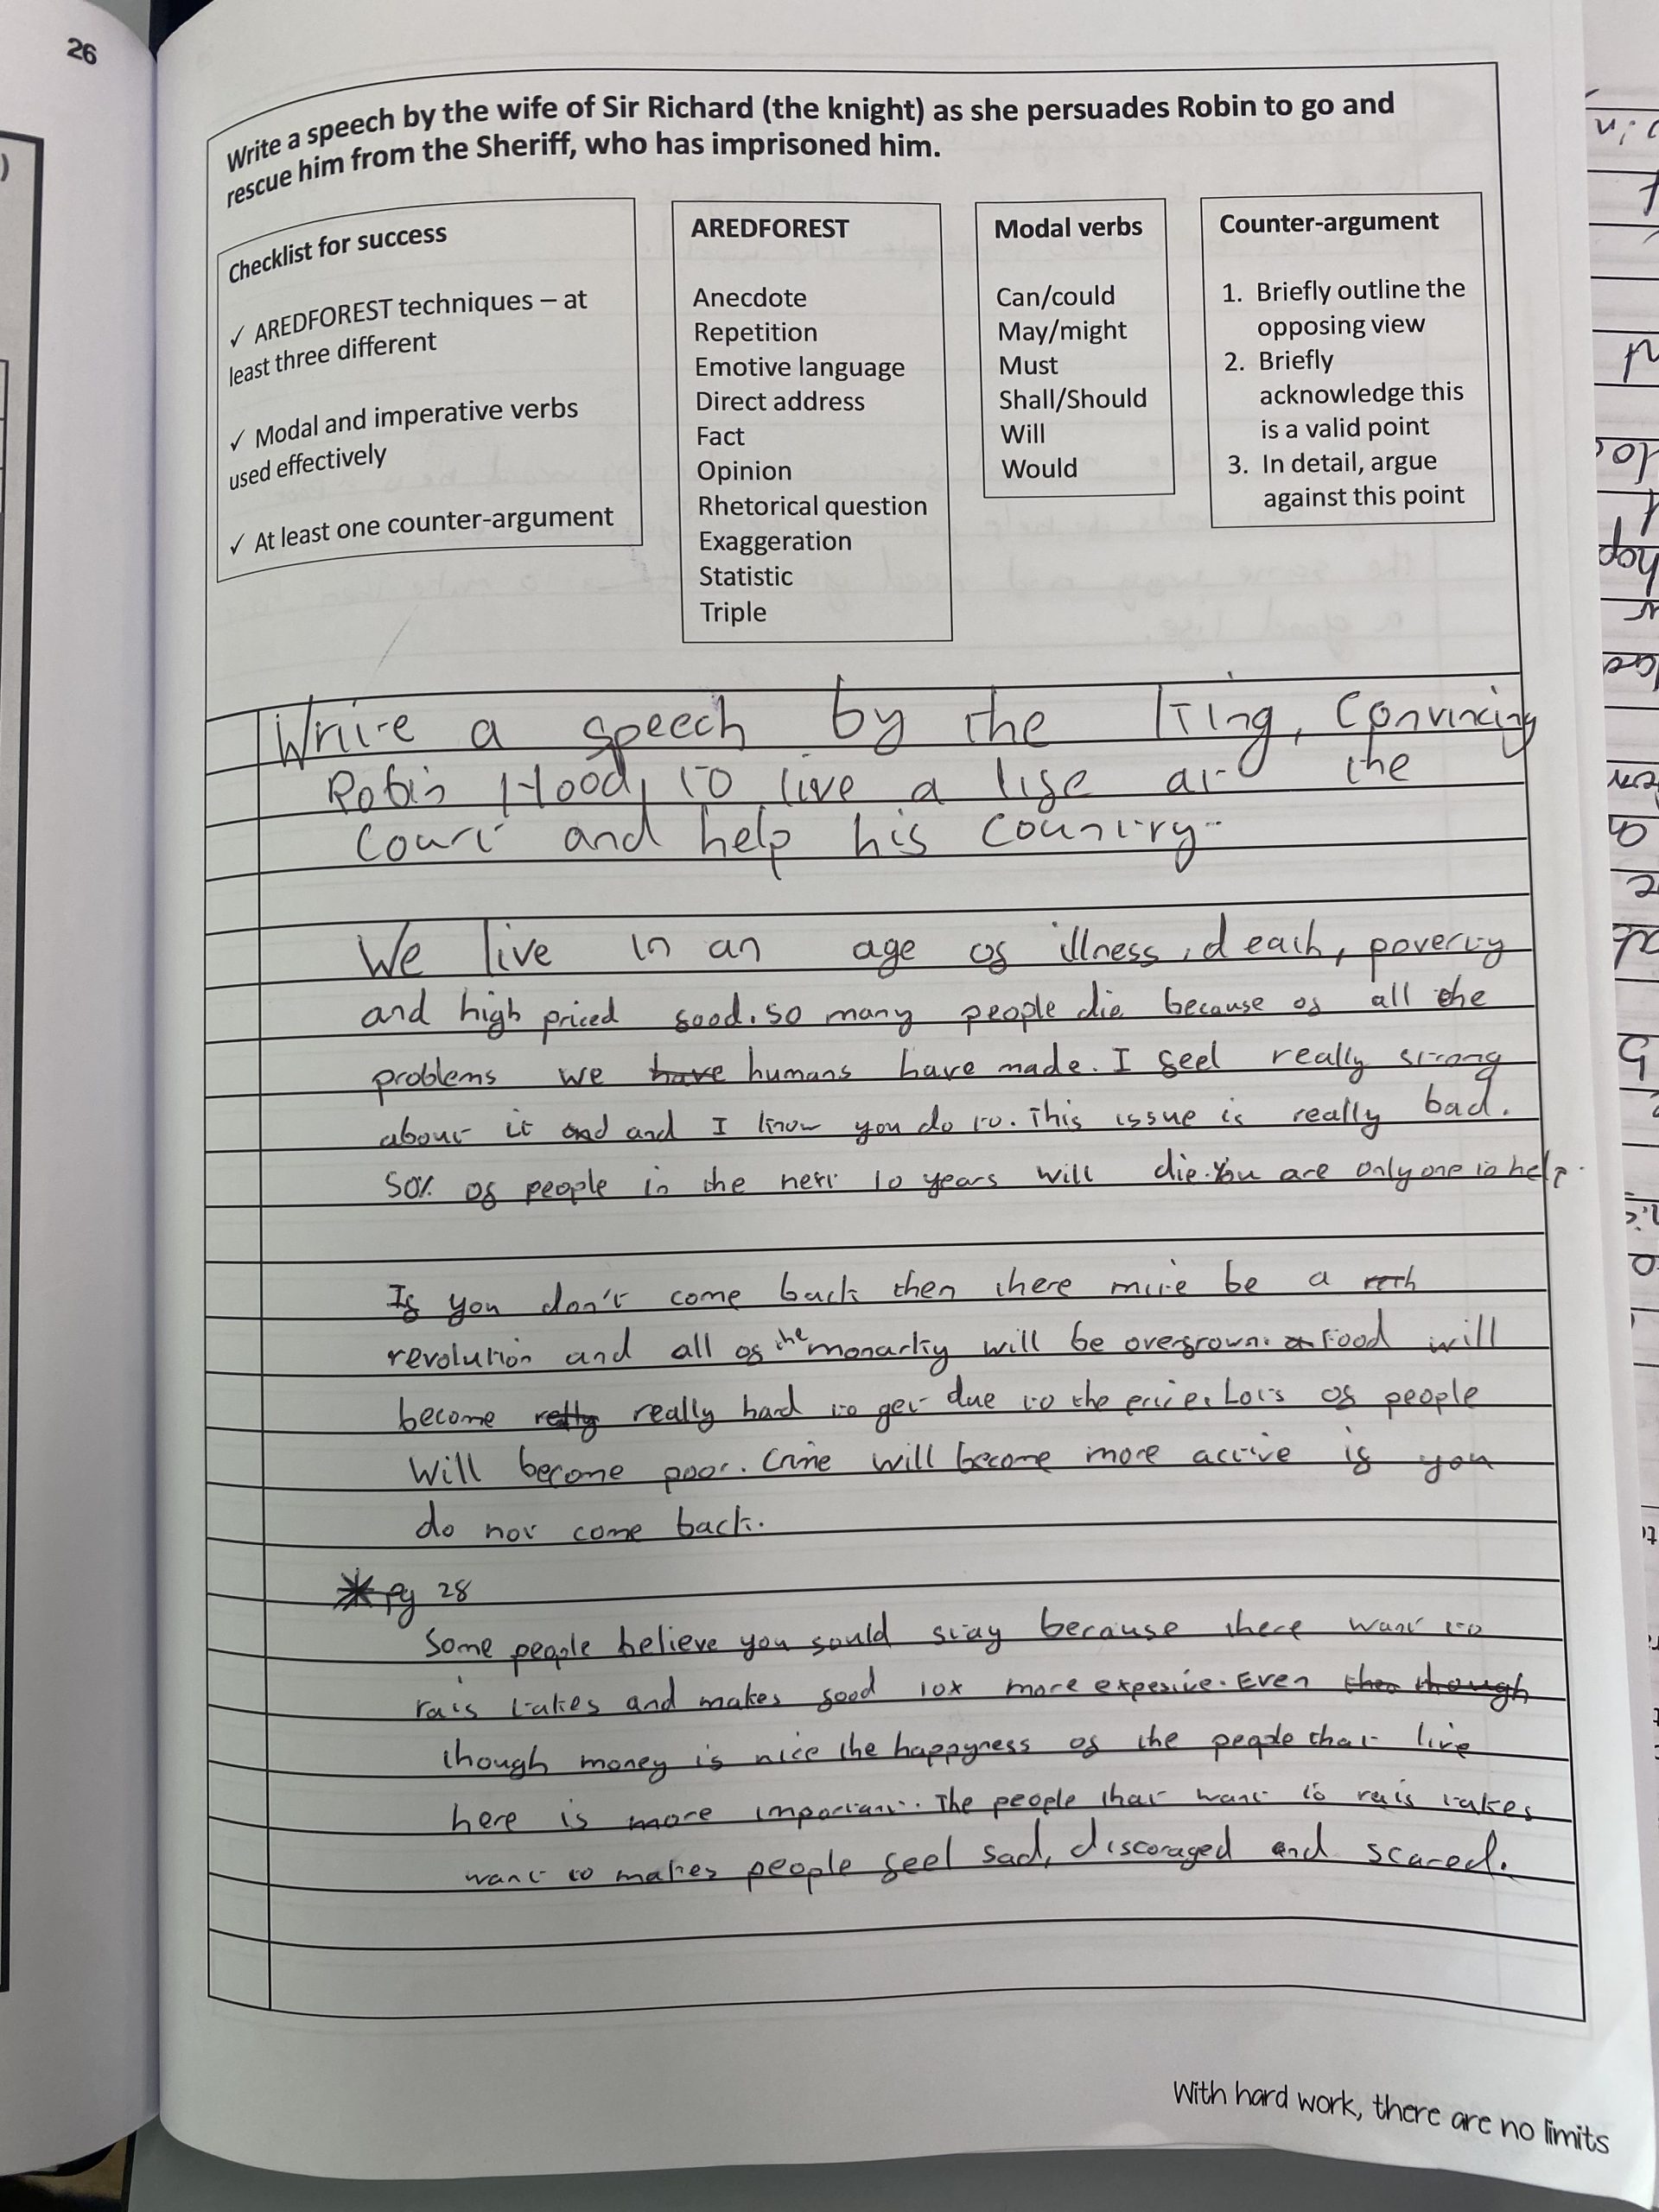 26
Write a speech by the wife of Sir Richard (the knight) as she persuades Robin to go and
rescue him from the Sheriff, who has imprisoned him.
Checklist for success
✓ AREDFOREST techniques – at
least three different
✓ Modal and imperative verbs
used effectively
✓ At least one counter-argument
AREDFOREST
Anecdote
Repetition
Emotive language
Direct address
Fact
Opinion
Rhetorical question
Exaggeration
Statistic
Triple
Modal verbs
Can/could
May/might
Must
Shall/Should
Will
Would
Counter-argument
1. Briefly outline the
opposing view
2. Briefly
acknowledge this
is a valid point
3. In detail, argue
against this point
Write a speech by the King, Convincing
Robin Hood, to live a life at the
Court and help his Country.
We live in an age of illness, death, poverty
and high priced food. so many people die because of all the
problems we have humans have made. I feel really strong
about it and and I know you do to. This issue is really bad.
50% of people in the next 10 years will die. You are only one to help.
If you don't come back then there mite be a
revolution and all of the monarky will be overgrown. Food will
become really hard to get due to the price. Lots of people
Will become poor. Crime will become more active if you
do not come back.
* pg 28
Some people believe you sould stay because there want to
rais takes and makes food 10x more expesive. Even though
though money is nice the happyness of the people that live
here is more important. The people that want to rais takes
want to makes people feel sad, discoraged and scared.
With hard work, there are no limits